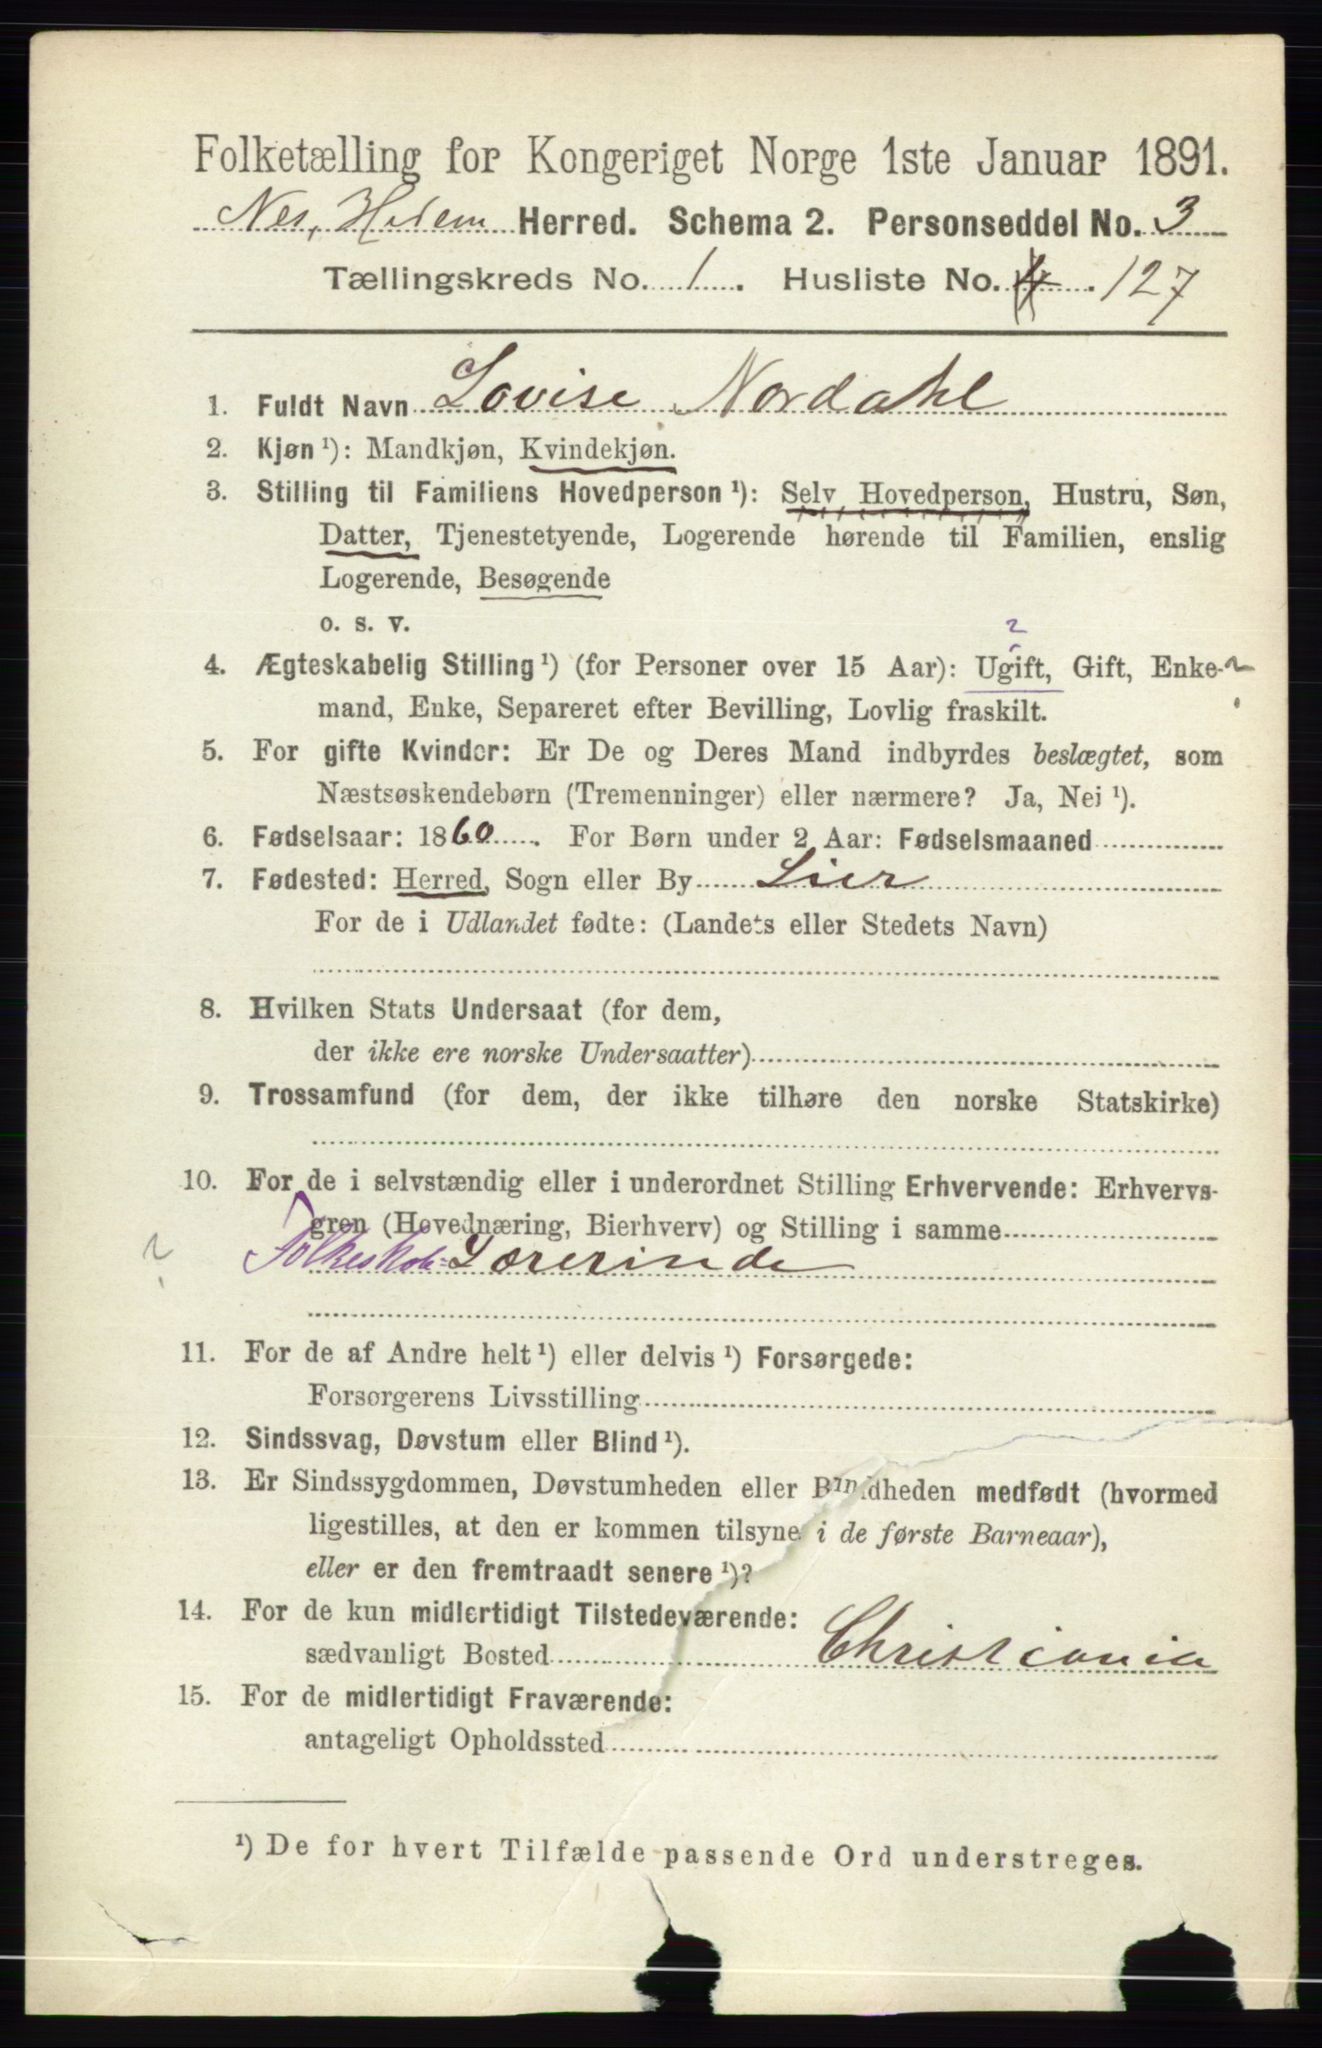 Folketælling for Kongeriget Norge 1ste Januar 1891.
Nes, Hedem Herred. Schema 2. Personseddel No. 3
Tællingskreds No. 1. Husliste No. 4. 127
1. Fuldt Navn Lovise Nordahl
2. Kjøn ¹): Mandkjøn, Kvindekjøn.
3. Stilling til Familiens Hovedperson ¹): Selv Hovedperson, Hustru, Søn,
Datter, Tjenestetyende, Logerende hørende til Familien, enslig
Logerende, Besøgende
o. s. v.
?
4. Ægteskabelig Stilling ¹) (for Personer over 15 Aar): Ugift, Gift, Enke- ?
mand, Enke, Separeret efter Bevilling, Lovlig fraskilt.
5. For gifte Kvinder: Er De og Deres Mand indbyrdes beslægtet, som
Næstsøskendebørn (Tremenninger) eller nærmere? Ja, Nei ¹).
6. Fødselsaar: 1860. For Børn under 2 Aar: Fødselsmaaned
7. Fødested: Herred, Sogn eller By Lier
For de i Udlandet fødte: (Landets eller Stedets Navn)
8. Hvilken Stats Undersaat (for dem,
der ikke ere norske Undersaatter)
9. Trossamfund (for dem, der ikke tilhøre den norske Statskirke)
10. For de i selvstændig eller i underordnet Stilling Erhvervende: Erhvervs-
gren (Hovednæring, Bierhverv) og Stilling i samme
? Folkeskole= Lærerinde
11. For de af Andre helt ¹) eller delvis ¹) Forsørgede:
Forsørgerens Livsstilling
12. Sindssvag, Døvstum eller Blind ¹).
13. Er Sindssygdommen, Døvstumheden eller Blindheden medfødt (hvormed
ligestilles, at den er kommen tilsyne i de første Barneaar),
eller er den fremtraadt senere ¹)?
14. For de kun midlertidigt Tilstedeværende:
sædvanligt Bosted Christiania
15. For de midlertidigt Fraværende:
antageligt Opholdssted
¹) De for hvert Tilfælde passende Ord understreges.